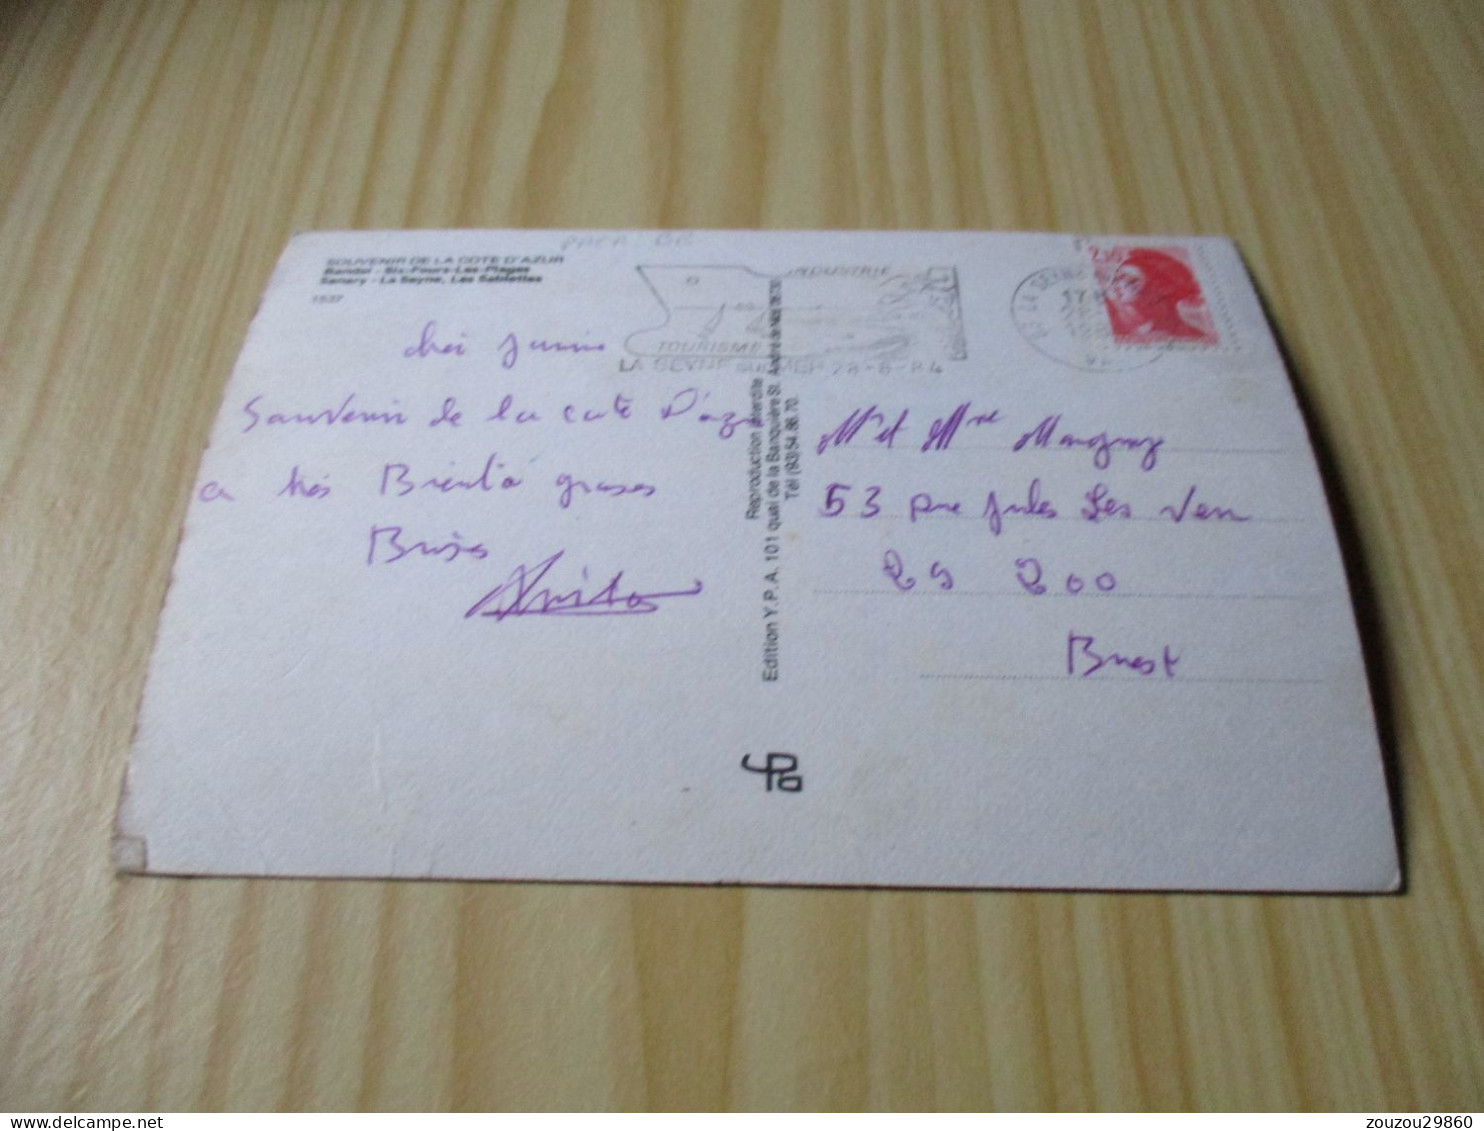 SOUVENIR DE LA COTE D'AZUR
Bandol - Six-Fours-Les-Plages
Sanary - La Seyne, Les Sablettes
1537
INDUSTRIE
TOURISME
LA SEYNE SUR MER 28-8-84
2,10
83 LA SEYNE
Souvenir de la cote D'azur
a très Bientô grosses
Bises
Reproduction interdite
Edition Y.P.A. 101 quai de la Banquière St. André de Nice 06730
Tél (93) 54.86.70.
Mr et Mme
53 rue jules Les Ven
29 200
Brest
ypa
zouzou29860